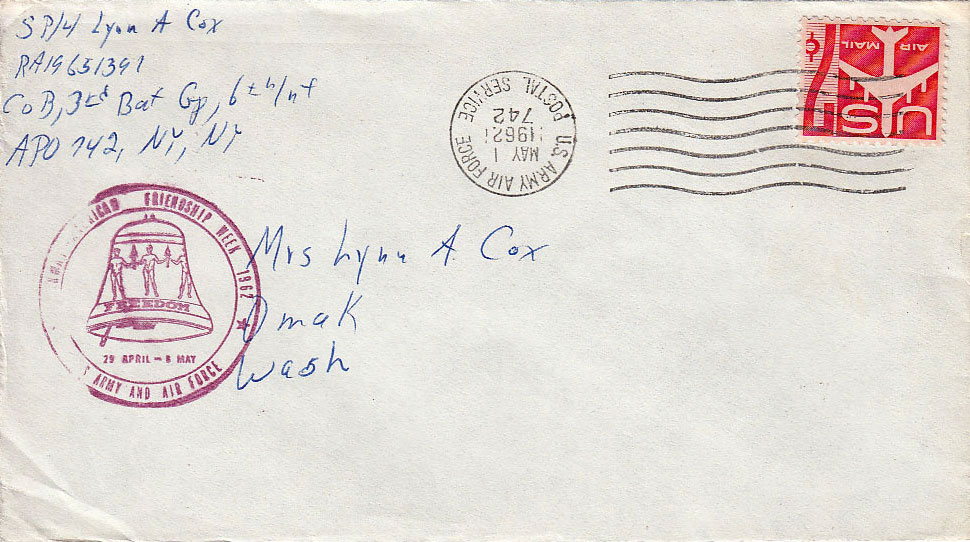 SP/4 Lynn A Cox
RA19651391
Co B, 3rd Bat Gp, 6th Inf
APO 742, NY, NY
U.S. ARMY AIR FORCE
POSTAL SERVICE
MAY 1
1962
742
AIR MAIL
US
FRIENDSHIP WEEK 1962
FREEDOM
29 APRIL - 6 MAY
ARMY AND AIR FORCE
Mrs Lynn A. Cox
Omak
Wash